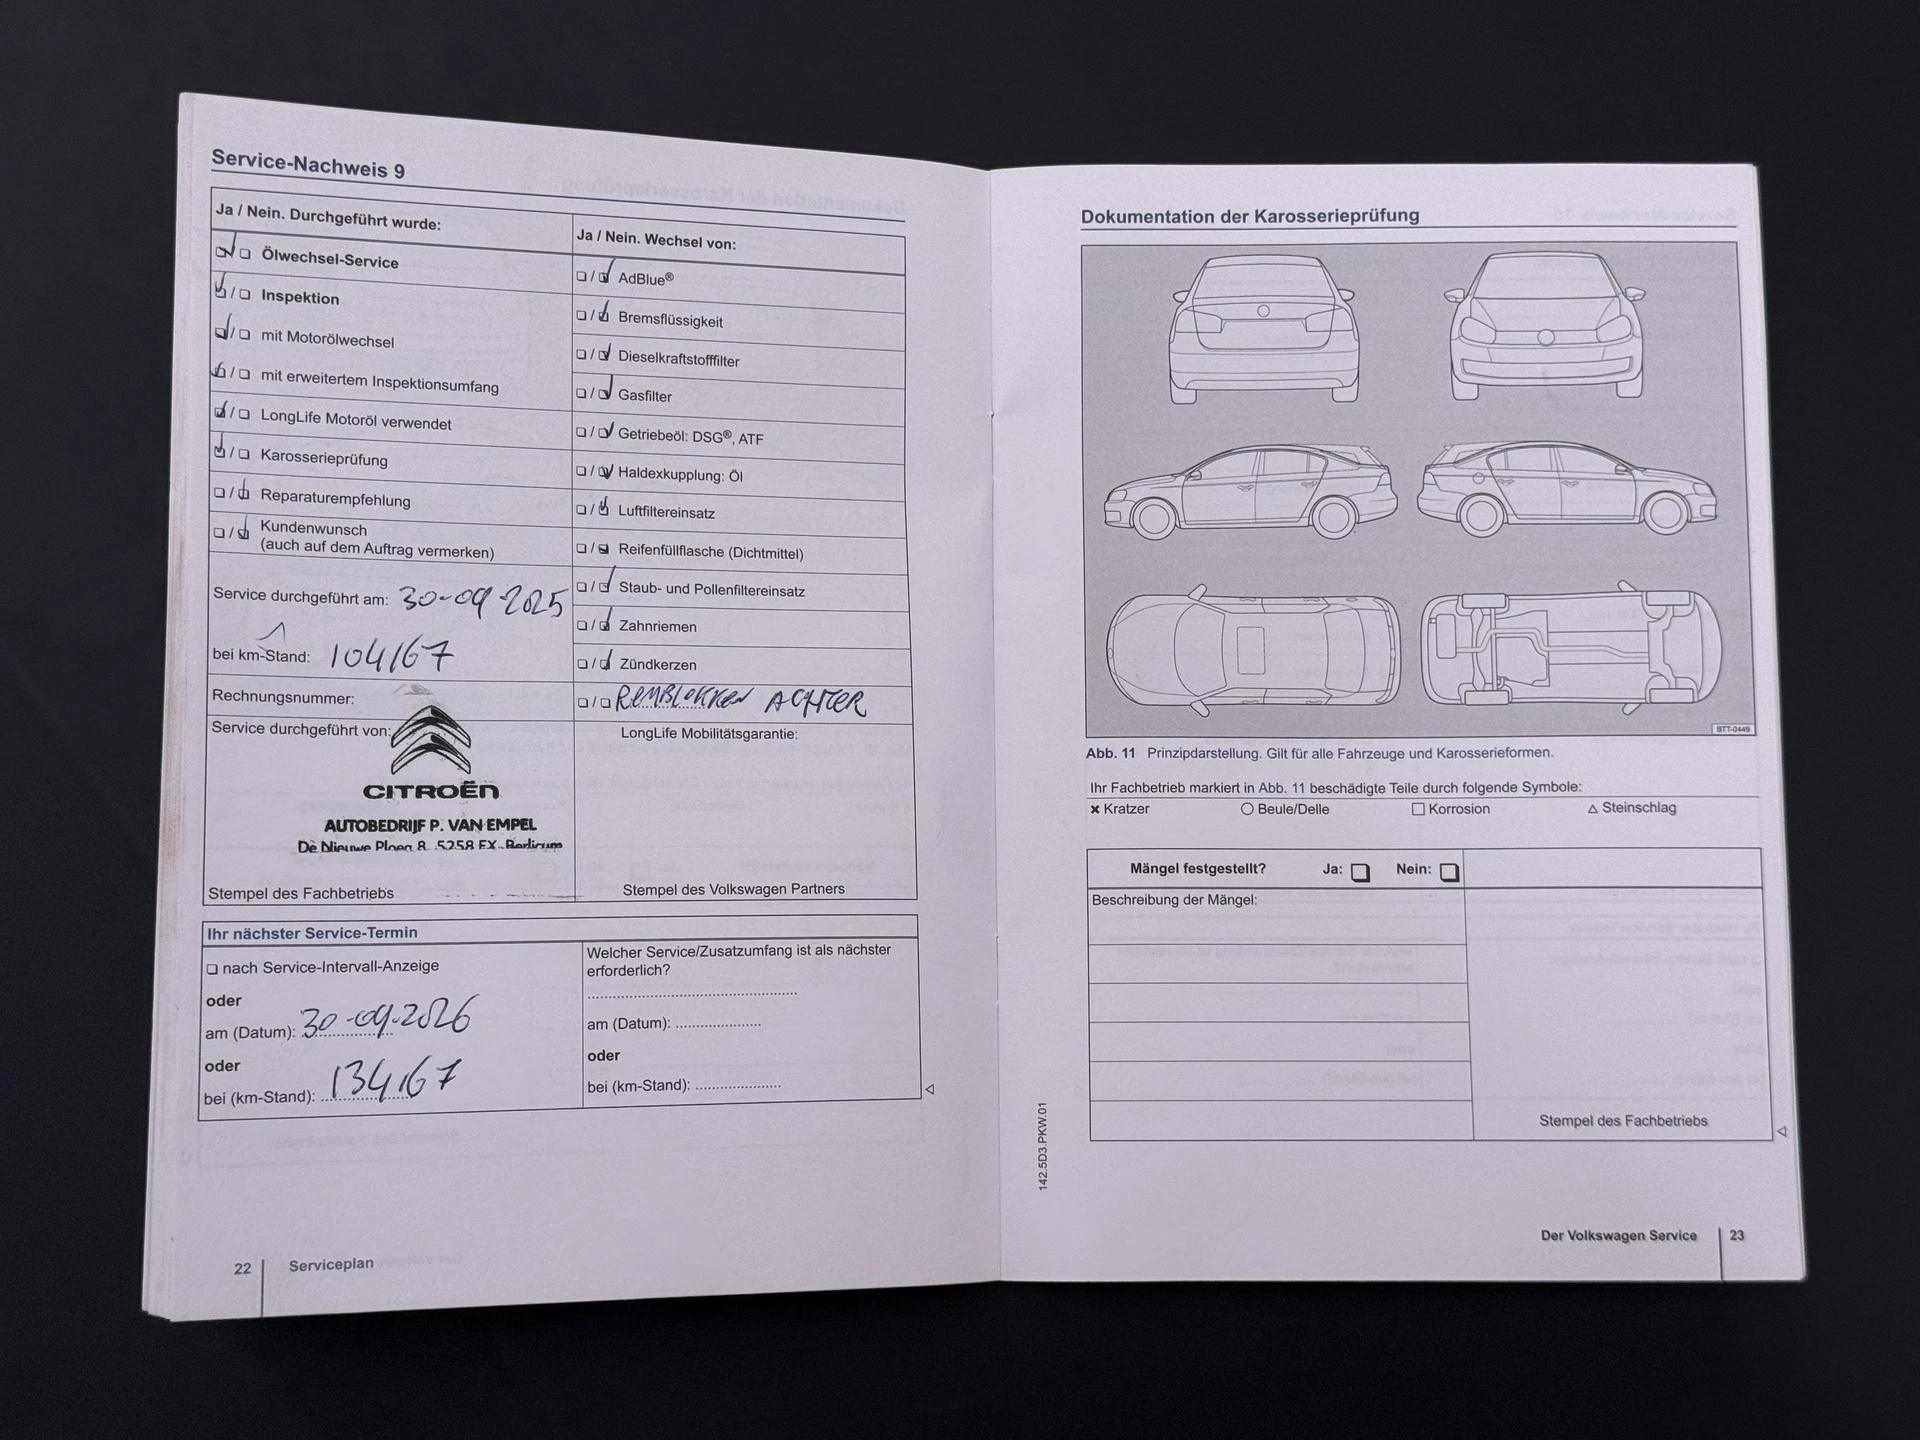 Service-Nachweis 9
Ja / Nein. Durchgeführt wurde:
Ölwechsel-Service
Inspektion
mit Motorölwechsel
mit erweitertem Inspektionsumfang
LongLife Motoröl verwendet
Karosserieprüfung
Reparaturempfehlung
Kundenwunsch
(auch auf dem Auftrag vermerken)
Service durchgeführt am: 30-09-2025
bei km-Stand: 104167
Rechnungsnummer:
Service durchgeführt von:
CITROËN
AUTOBEDRIJF P. VAN EMPEL
De Nieuwe Ploeg 8, 5258 EX Berlicum
Stempel des Fachbetriebs
Ja / Nein. Wechsel von:
AdBlue®
Bremsflüssigkeit
Dieselkraftstofffilter
Gasfilter
Getriebeöl: DSG®, ATF
Haldexkupplung: Öl
Luftfiltereinsatz
Reifenfüllflasche (Dichtmittel)
Staub- und Pollenfiltereinsatz
Zahnriemen
Zündkerzen
REMBLOKKEN ACHTER
LongLife Mobilitätsgarantie:
Stempel des Volkswagen Partners
Ihr nächster Service-Termin
nach Service-Intervall-Anzeige
oder
am (Datum): 30-09-2026
oder
bei (km-Stand): 134167
Welcher Service/Zusatzumfang ist als nächster
erforderlich?
am (Datum):
oder
bei (km-Stand):
22 Serviceplan
Dokumentation der Karosserieprüfung
BTT-0449
Abb. 11 Prinzipdarstellung. Gilt für alle Fahrzeuge und Karosserieformen.
Ihr Fachbetrieb markiert in Abb. 11 beschädigte Teile durch folgende Symbole:
× Kratzer ○ Beule/Delle □ Korrosion △ Steinschlag
Mängel festgestellt? Ja: Nein:
Beschreibung der Mängel:
Stempel des Fachbetriebs
142.5D3.PKW.01
Der Volkswagen Service 23